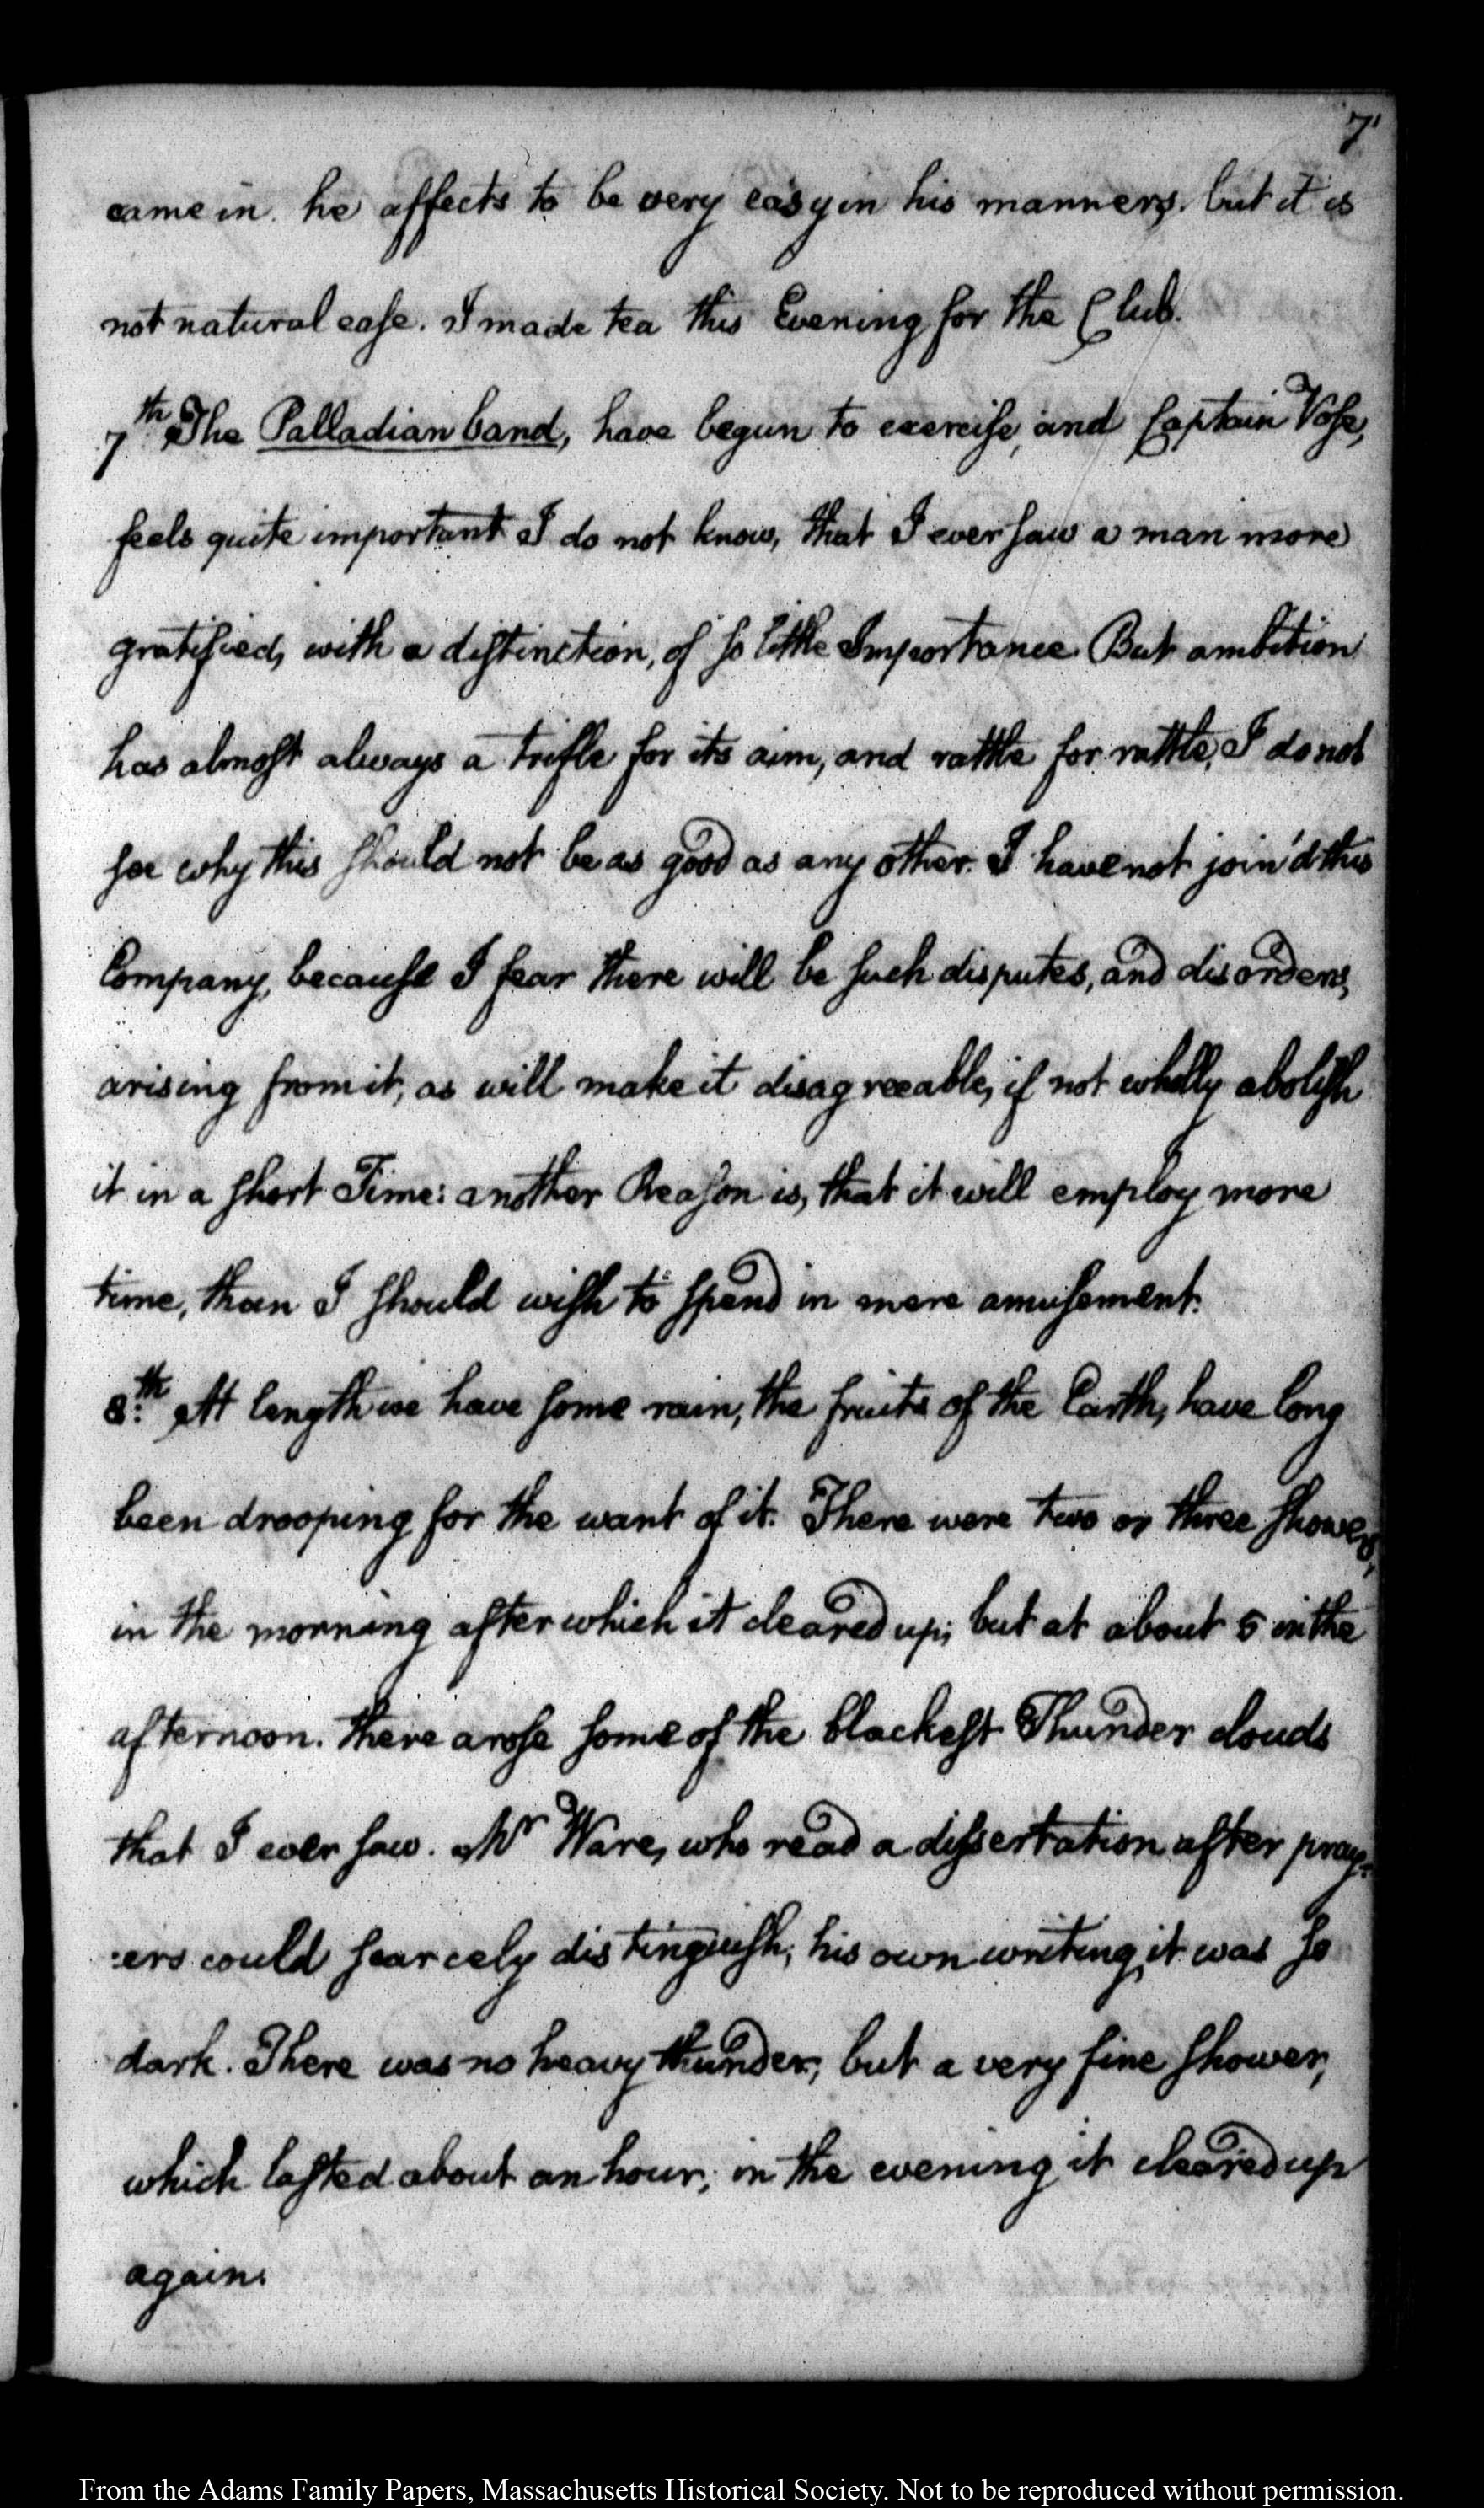 7
came in. he affects to be very easy in his manners. but it is
not natural ease. I made tea this Evening for the Club.
7th. The Palladian band, have begun to exercise, and Captain Vose,
feels quite important I do not know, that I ever saw a man more
gratified, with a distinction, of so little Importance. But ambition
has almost always a trifle for its aim, and rattle for rattle, I do not
see why this should not be as good as any other. I have not join'd this
Company, because I fear there will be such disputes, and disorders,
arising from it, as will make it disagreeable, if not wholly abolish
it in a short Time: another Reason is, that it will employ more
time, than I should wish to spend in mere amusement.
8th. At length we have some rain, the fruits of the Earth, have long
been drooping for the want of it. There were two or three showers,
in the morning after which it cleared up; but at about 5 in the
afternoon. there arose some of the blackest Thunder clouds
that I ever saw. Mr Ware, who read a dissertation after pray-
:ers could scarcely distinguish, his own writing, it was so
dark. There was no heavy thunder, but a very fine shower,
which lasted about an hour; in the evening it cleared up
again.
From the Adams Family Papers, Massachusetts Historical Society. Not to be reproduced without permission.